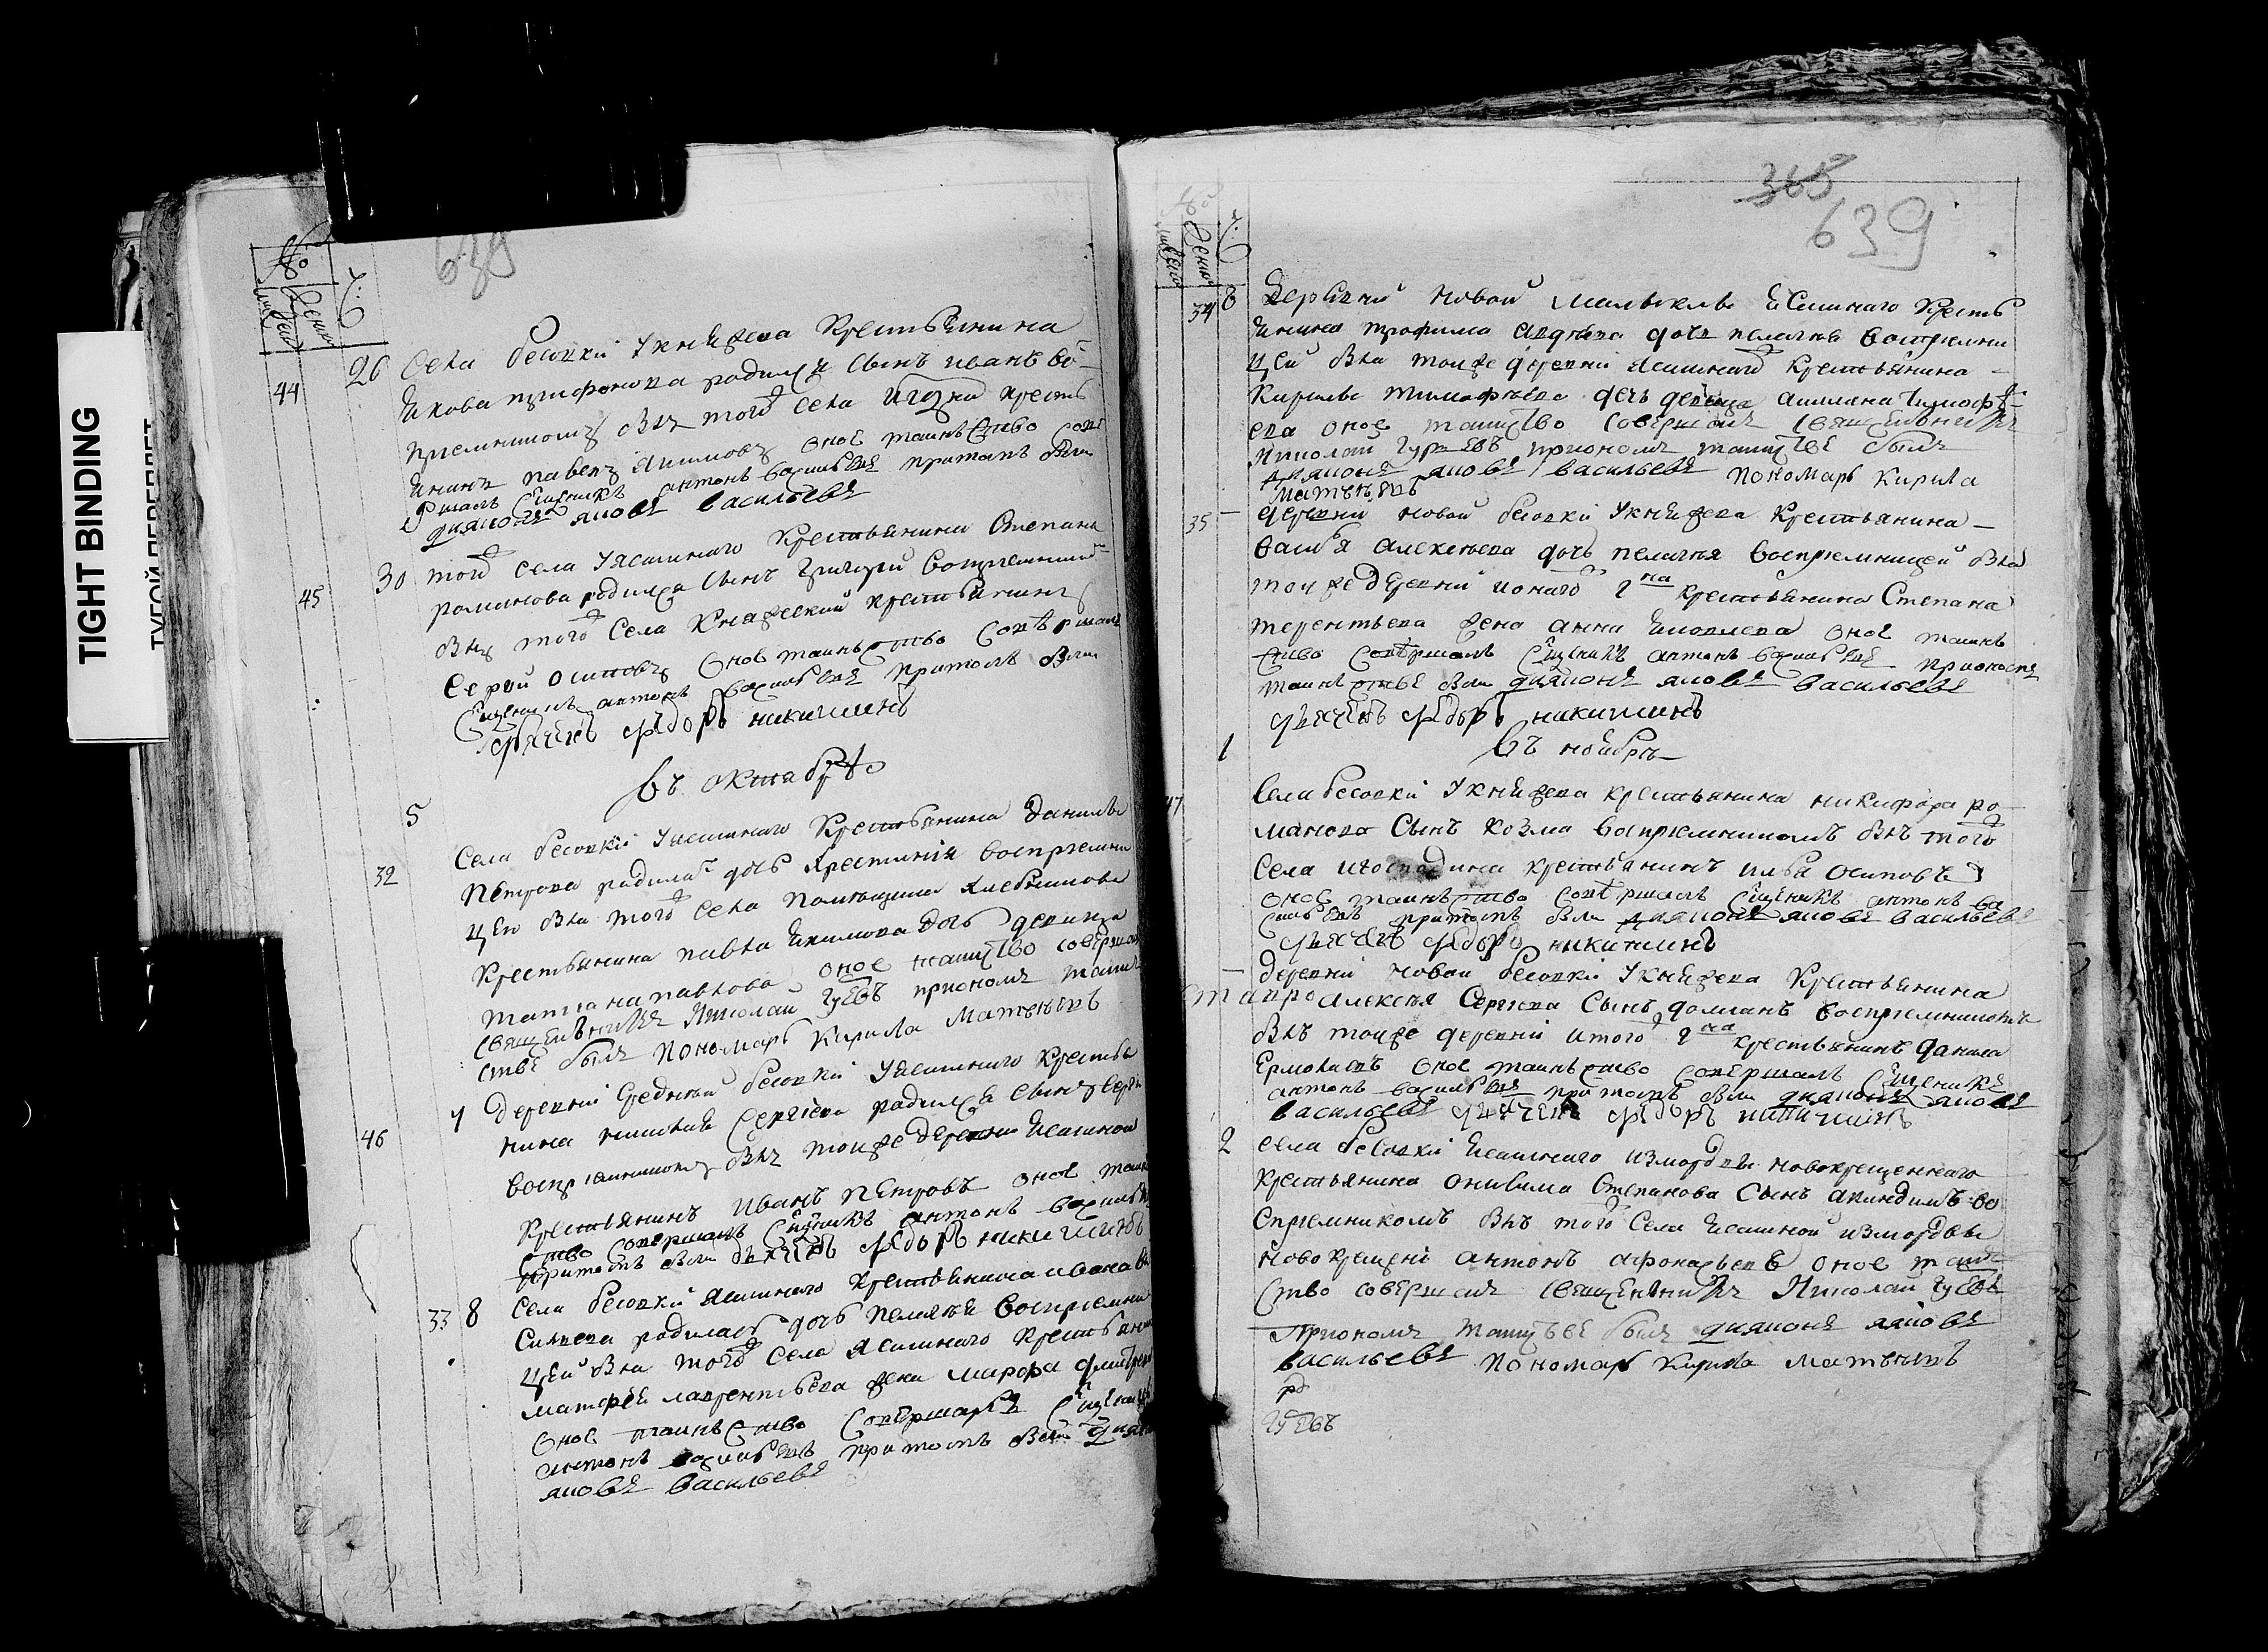 TIGHT BINDING
ТУГОЙ ПЕРЕПЛЕТ
638
26 Села бесовки Укнязева Крестьянина
44 Якова трифонова родился Сынъ иванъ во
приемникомъ былъ того Села Крестья
нинъ павелъ Якимовъ оное таинство сове
ршалъ Сщеникъ антонъ василевъ притомъ были
дияконъ яковъ васильевъ
30 того Села Уясашнаго Крестьянина Степана
45 романова родился Сынъ Григорей Восприемникомъ
былъ того Села Княжеский крестьянинъ
Сергей осиповъ Оное таинство Совершалъ
Сщеникъ антонъ василевъ притомъ были
дьячекъ федоръ никитинъ
въ октябрѣ
5
Села бесовки Уясашнаго Крестьянина Данилы
32 Петрова родилась дочь Крестиния восприемни
цей была того Села помещика
Крестьянина павла Якимова дочь девица
татиана павлова оное таинство соверша
священникъ Николай Гуревъ приономъ таин
стве былъ Пономарь Кирила Матвеевъ
7 деревни Средней бесовки Уясашнаго Крестья
46 нина Сергѣева родился Сынъ Серге
восприемникомъ былъ тоиже деревни Ясашной
Крестьянинъ Иванъ Петровъ оное таин
ство Совершалъ Сщеникъ антонъ василев
притомъ были дьячекъ федоръ никитинъ
33 8 Села бесовки Ясашнаго Крестьянина ивана
родилась дочь Пелагея восприемни
цей была того Села Ясашнаго Крестьян
матфея лаврентьева жена марфа дмитре
Оное таинство Совершалъ Сщеникъ
антонъ василевъ притомъ были дияко
яковъ васильевъ
365
639
34 8 Деревни Новой Ясашнаго Кресть
янина трофима авдеева дочь пелагея восприемни
цей была тоиже деревни Ясашнаго Крестьянина
Кирилы тимофѣева дочь девица тимофѣ
ева оное таинство Совершалъ Священникъ
Николай Гуревъ приономъ таинстве былъ
дияконъ яковъ васильевъ Пономарь Кирила
Матвѣевъ
35 деревни новой бесовки Укнязева Крестьянина
Василья Алексеева дочь пелагея Восприемницей была
тоиже деревни ионаго гна Крестьянина Степана
терентьева жена анна Яковлева оное таин
ство Совершалъ Сщеникъ антонъ василевъ приономъ
таинстве были дияконъ яковъ васильевъ
дьячекъ федоръ никитинъ
1 въ ноябрѣ
47 Села бесовки Укнязева крестьянина никифора ро
манова Сынъ Козма Восприемникомъ былъ того
Села игосподина крестьянинъ илья осиповъ
оное таинство Совершалъ Сщеникъ антонъ ва
силевъ притомъ были дияконъ яковъ васильевъ
дьячекъ федоръ никитинъ
деревни новой бесовки Укнязева Крестьянина
Алексея Сергѣева Сынъ домианъ Восприемникомъ
былъ тоиже деревни итого гна Крестьянинъ данила
Ермолаевъ Оное таинство Совершалъ Сщеникъ
антонъ василевъ притомъ были дияконъ яковъ
васильевъ дьячекъ федоръ никитинъ
2 Села бесовки Ясашнаго измордвы новокрещеннаго
Крестьянина Степанова Сынъ акиндинъ во
сприемникомъ былъ того Села Ясашной измордвы
новокрещенъ антонъ афонасьевъ оное таин
ство совершалъ священникъ Николай Гуревъ
Приономъ таинстве былъ дияконъ яковъ
васильевъ Пономарь Кирила Матвеевъ
Гуревъ